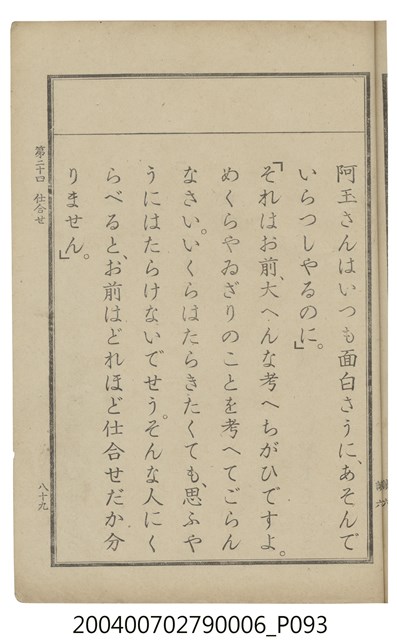 阿玉さんはいつも面白さうに、あそんで
いらつしやるのに。」
「それはお前、大へんな考へちがひですよ。
めくらやゐざりのことを考へてごらん
なさい。いくらはたらきたくても、思ふや
うにはたらけないでせう。そんな人にく
らべると、お前はどれほど仕合せだか分
りません。」
第二十口 仕合せ
八十九
200400702790006_P093